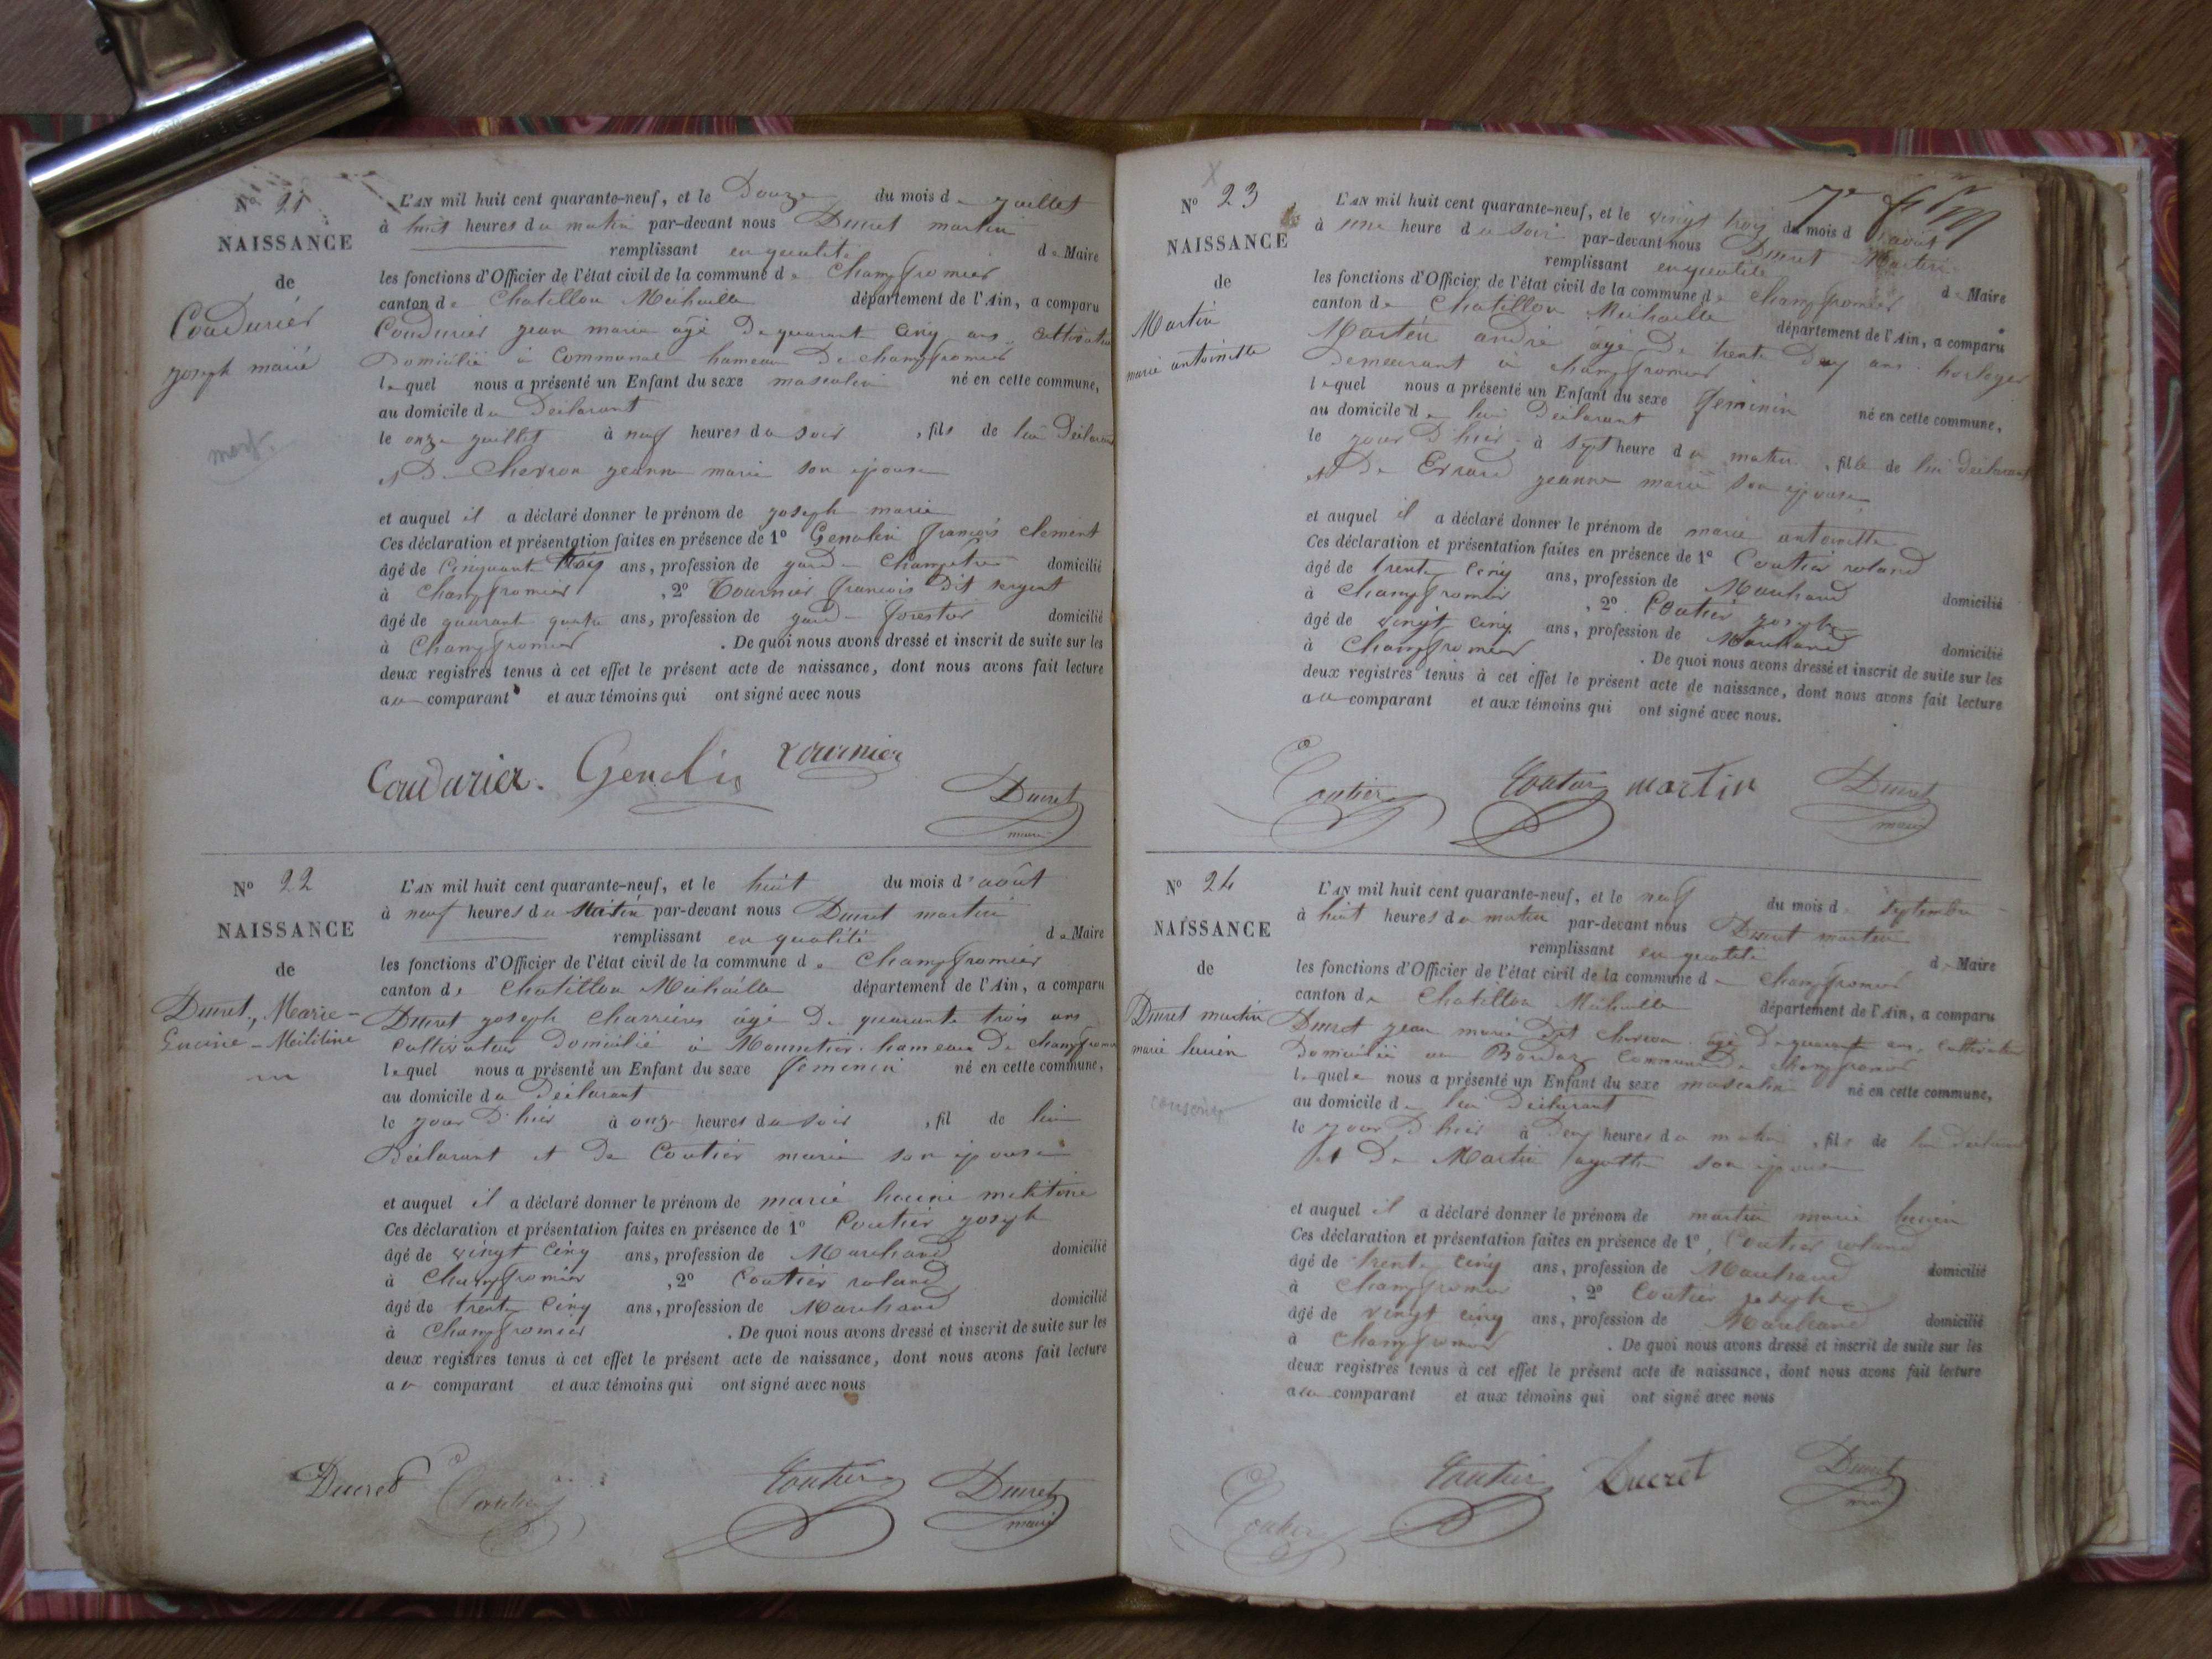 N° 21
NAISSANCE
de
Coudurier
joseph marié
mort.
L'AN mil huit cent quarante-neuf, et le Douze du mois de juillet
à huit heures du matin par-devant nous Ducret martin
remplissant en qualité de Maire
les fonctions d'Officier de l'état civil de la commune de Champfromier
canton de Chatillon Michaille département de l'Ain, a comparu
Coudurier jean marie âgé De quarant cinq ans cultivateur
Domicilié à Communal hameau De champfromier
lequel nous a présenté un Enfant du sexe masculin né en cette commune,
au domicile du Déclarant
le onze juillet à neuf heures du soir , fils de lui Déclarant
et De Chevron jeanne marie son épouse
et auquel il a déclaré donner le prénom de joseph marie
Ces déclaration et présentation faites en présence de 1° Genolin françois clement
âgé de Cinquante trois ans, profession de garde Champêtre domicilié
à Champfromier , 2° Tournier francois Dit sergent
âgé de quarant quatre ans, profession de garde forestier domicilié
à Champfromier . De quoi nous avons dressé et inscrit de suite sur les
deux registres tenus à cet effet le présent acte de naissance, dont nous avons fait lecture
au comparant et aux témoins qui ont signé avec nous
Coudurier. Genolin Tournier Ducret
maire
N° 22
NAISSANCE
de
Ducret, Marie-
Lucine-Mélitine
L'AN mil huit cent quarante-neuf, et le huit du mois d'août
à neuf heures du Matin par-devant nous Ducret martin
remplissant en qualité de Maire
les fonctions d'Officier de l'état civil de la commune de Champfromier
canton de Chatillon Michaille département de l'Ain, a comparu
Ducret joseph Charrières âgé De quarante trois ans
Cultivateur Domicilié à Monnetier hameau De champfromier
lequel nous a présenté un Enfant du sexe feminin né en cette commune,
au domicile du Déclarant
le jour D'hier à onze heures du soir , fil de lui
Déclarant et De Coutier marie son épouse
et auquel il a déclaré donner le prénom de marie lucine melitine
Ces déclaration et présentation faites en présence de 1° Coutier joseph
âgé de vingt cinq ans, profession de Marchand domicilié
à Champfromier , 2° Coutier roland
âgé de trente cinq ans, profession de Marchand domicilié
à Champfromier . De quoi nous avons dressé et inscrit de suite sur les
deux registres tenus à cet effet le présent acte de naissance, dont nous avons fait lecture
au comparant et aux témoins qui ont signé avec nous
Ducret Coutier Coutier Ducret
maire
N° 23
NAISSANCE
de
Martin
marie antoinette
L'AN mil huit cent quarante-neuf, et le vingt trois du mois d'août
à une heure du soir par-devant nous Ducret Martin
remplissant en qualité de Maire
les fonctions d'Officier de l'état civil de la commune de champfromier
canton de Chatillon Michaille département de l'Ain, a comparu
Martin andré âgé De trente Deux ans horloger
Demeurant à champfromier
lequel nous a présenté un Enfant du sexe feminin né en cette commune,
au domicile de lui Déclarant
le jour D'hier à sept heure du matin , fille de lui déclarant
et De Evrard jeanne marie son épouse
et auquel il a déclaré donner le prénom de marie antoinette
Ces déclaration et présentation faites en présence de 1° Coutier roland
âgé de trente cinq ans, profession de Marchand domicilié
à Champfromier , 2° Coutier joseph
âgé de vingt cinq ans, profession de Marchand domicilié
à Champfromier . De quoi nous avons dressé et inscrit de suite sur les
deux registres tenus à cet effet le présent acte de naissance, dont nous avons fait lecture
au comparant et aux témoins qui ont signé avec nous.
Coutier Coutier martin Ducret
maire
N° 24
NAISSANCE
de
Ducret martin
marie lucien
L'AN mil huit cent quarante-neuf, et le neuf du mois de septembre
à huit heures du matin par-devant nous Ducret martin
remplissant en qualité de Maire
les fonctions d'Officier de l'état civil de la commune de champfromier
canton de Chatillon Michaille département de l'Ain, a comparu
Ducret jean marie Dit chevron âgé De quarante ans, cultivateur
Domicilié au Bordaz Commune De champfromier
lequel nous a présenté un Enfant du sexe masculin né en cette commune,
au domicile de lui Déclarant
le jour D'hier à deux heures du matin , fils de lui déclarant
et De Martin agathe son épouse
et auquel il a déclaré donner le prénom de martin marie lucien
Ces déclaration et présentation faites en présence de 1° Coutier roland
âgé de trente cinq ans, profession de Marchand domicilié
à Champfromier , 2° Coutier joseph
âgé de vingt cinq ans, profession de Marchand domicilié
à Champfromier . De quoi nous avons dressé et inscrit de suite sur les
deux registres tenus à cet effet le présent acte de naissance, dont nous avons fait lecture
au comparant et aux témoins qui ont signé avec nous
Coutier Coutier Ducret Ducret
maire